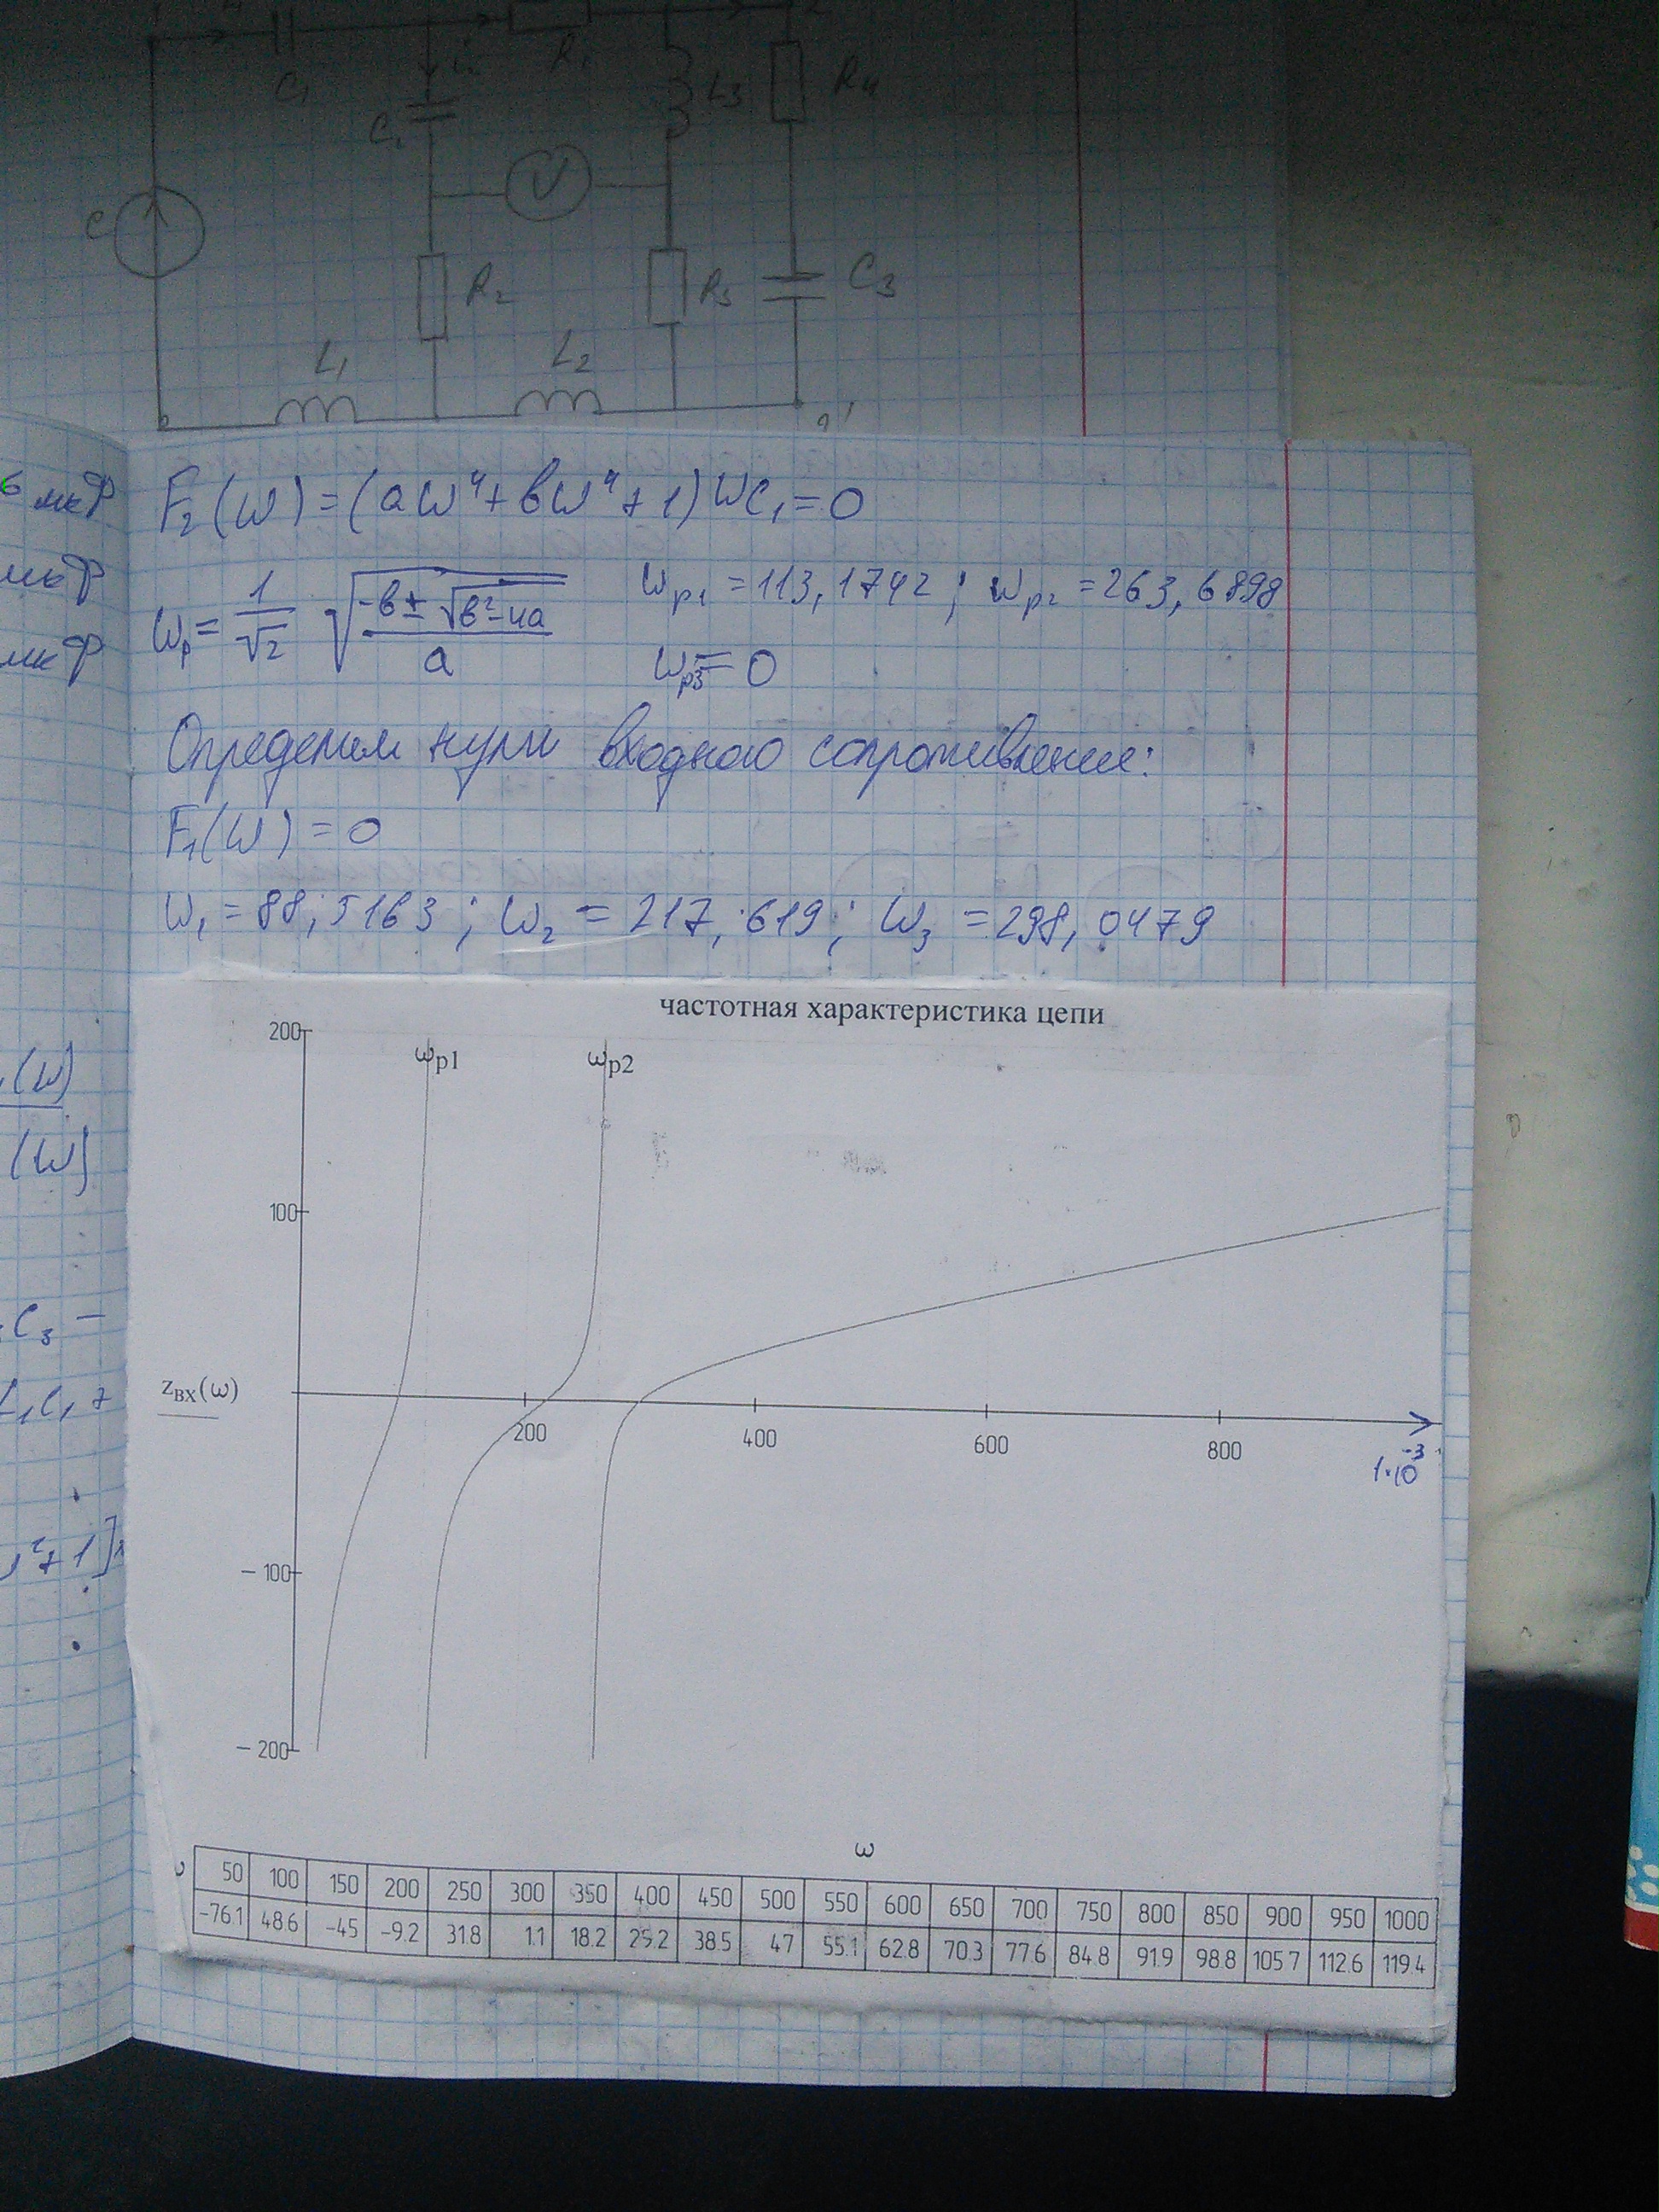 C₁
i₂
R₁
L₃
R₄
C₁
V
e
R₂
R₃
C₃
L₁
L₂
6 мкФ
F₂(ω) = (aω⁴ + bω⁴ + 1)ωC₁ = 0
мкФ
ωp = 1/√2 √((-b ± √(b²-4a))/a)
ωp₁ = 113,1742 ; ωp₂ = 263,6898
мкФ
ωp3 = 0
Определим нули входного сопротивления:
F₁(ω) = 0
ω₁ = 88,5163 ; ω₂ = 217,619 ; ω₃ = 298,0479
(ω)
(ω)
C₃ –
L₁C₁ +
²+1]
частотная характеристика цепи
200
ωp1
ωp2
100
zвх(ω)
200
400
600
800
1·10⁻³
– 100
– 200
ω
50 100 150 200 250 300 350 400 450 500 550 600 650 700 750 800 850 900 950 1000
-76.1 48.6 -45 -9.2 31.8 1.1 18.2 29.2 38.5 47 55.1 62.8 70.3 77.6 84.8 91.9 98.8 105.7 112.6 119.4